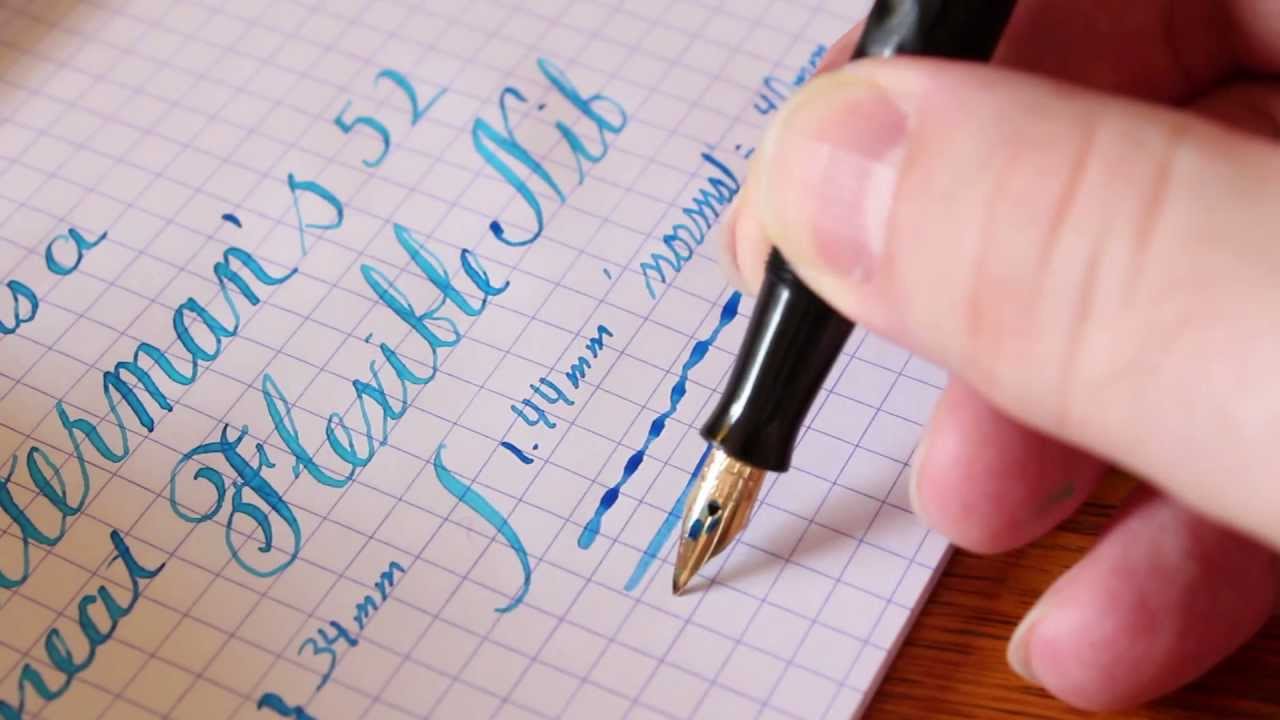 s a
terman's 52
reat Flexible Nib
34mm 1.44mm normal = .40mm